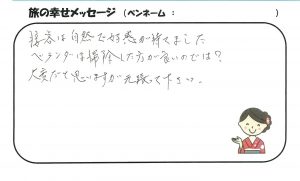 旅の幸せメッセージ (ペンネーム：　　　)
接客は自然で好感が持てました
ベランダは掃除した方が良いのでは?
大変だと思いますが元気で頑張って下さい。